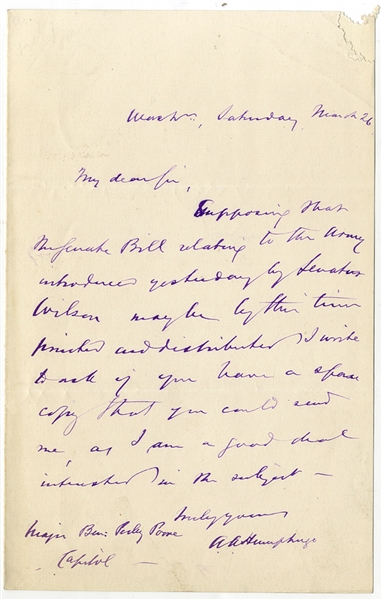 Washn, Saturday, March 26
My dear Sir,
Supposing that
the Senate Bill relating to the Army
introduced yesterday by Senator
Wilson may be by this time
printed and distributed I write
to ask if you have a spare
copy that you could send
me, as I am a good deal
interested in the subject —
truly yours
Major Ben: Perley Poore A A Humphreys
Capitol —